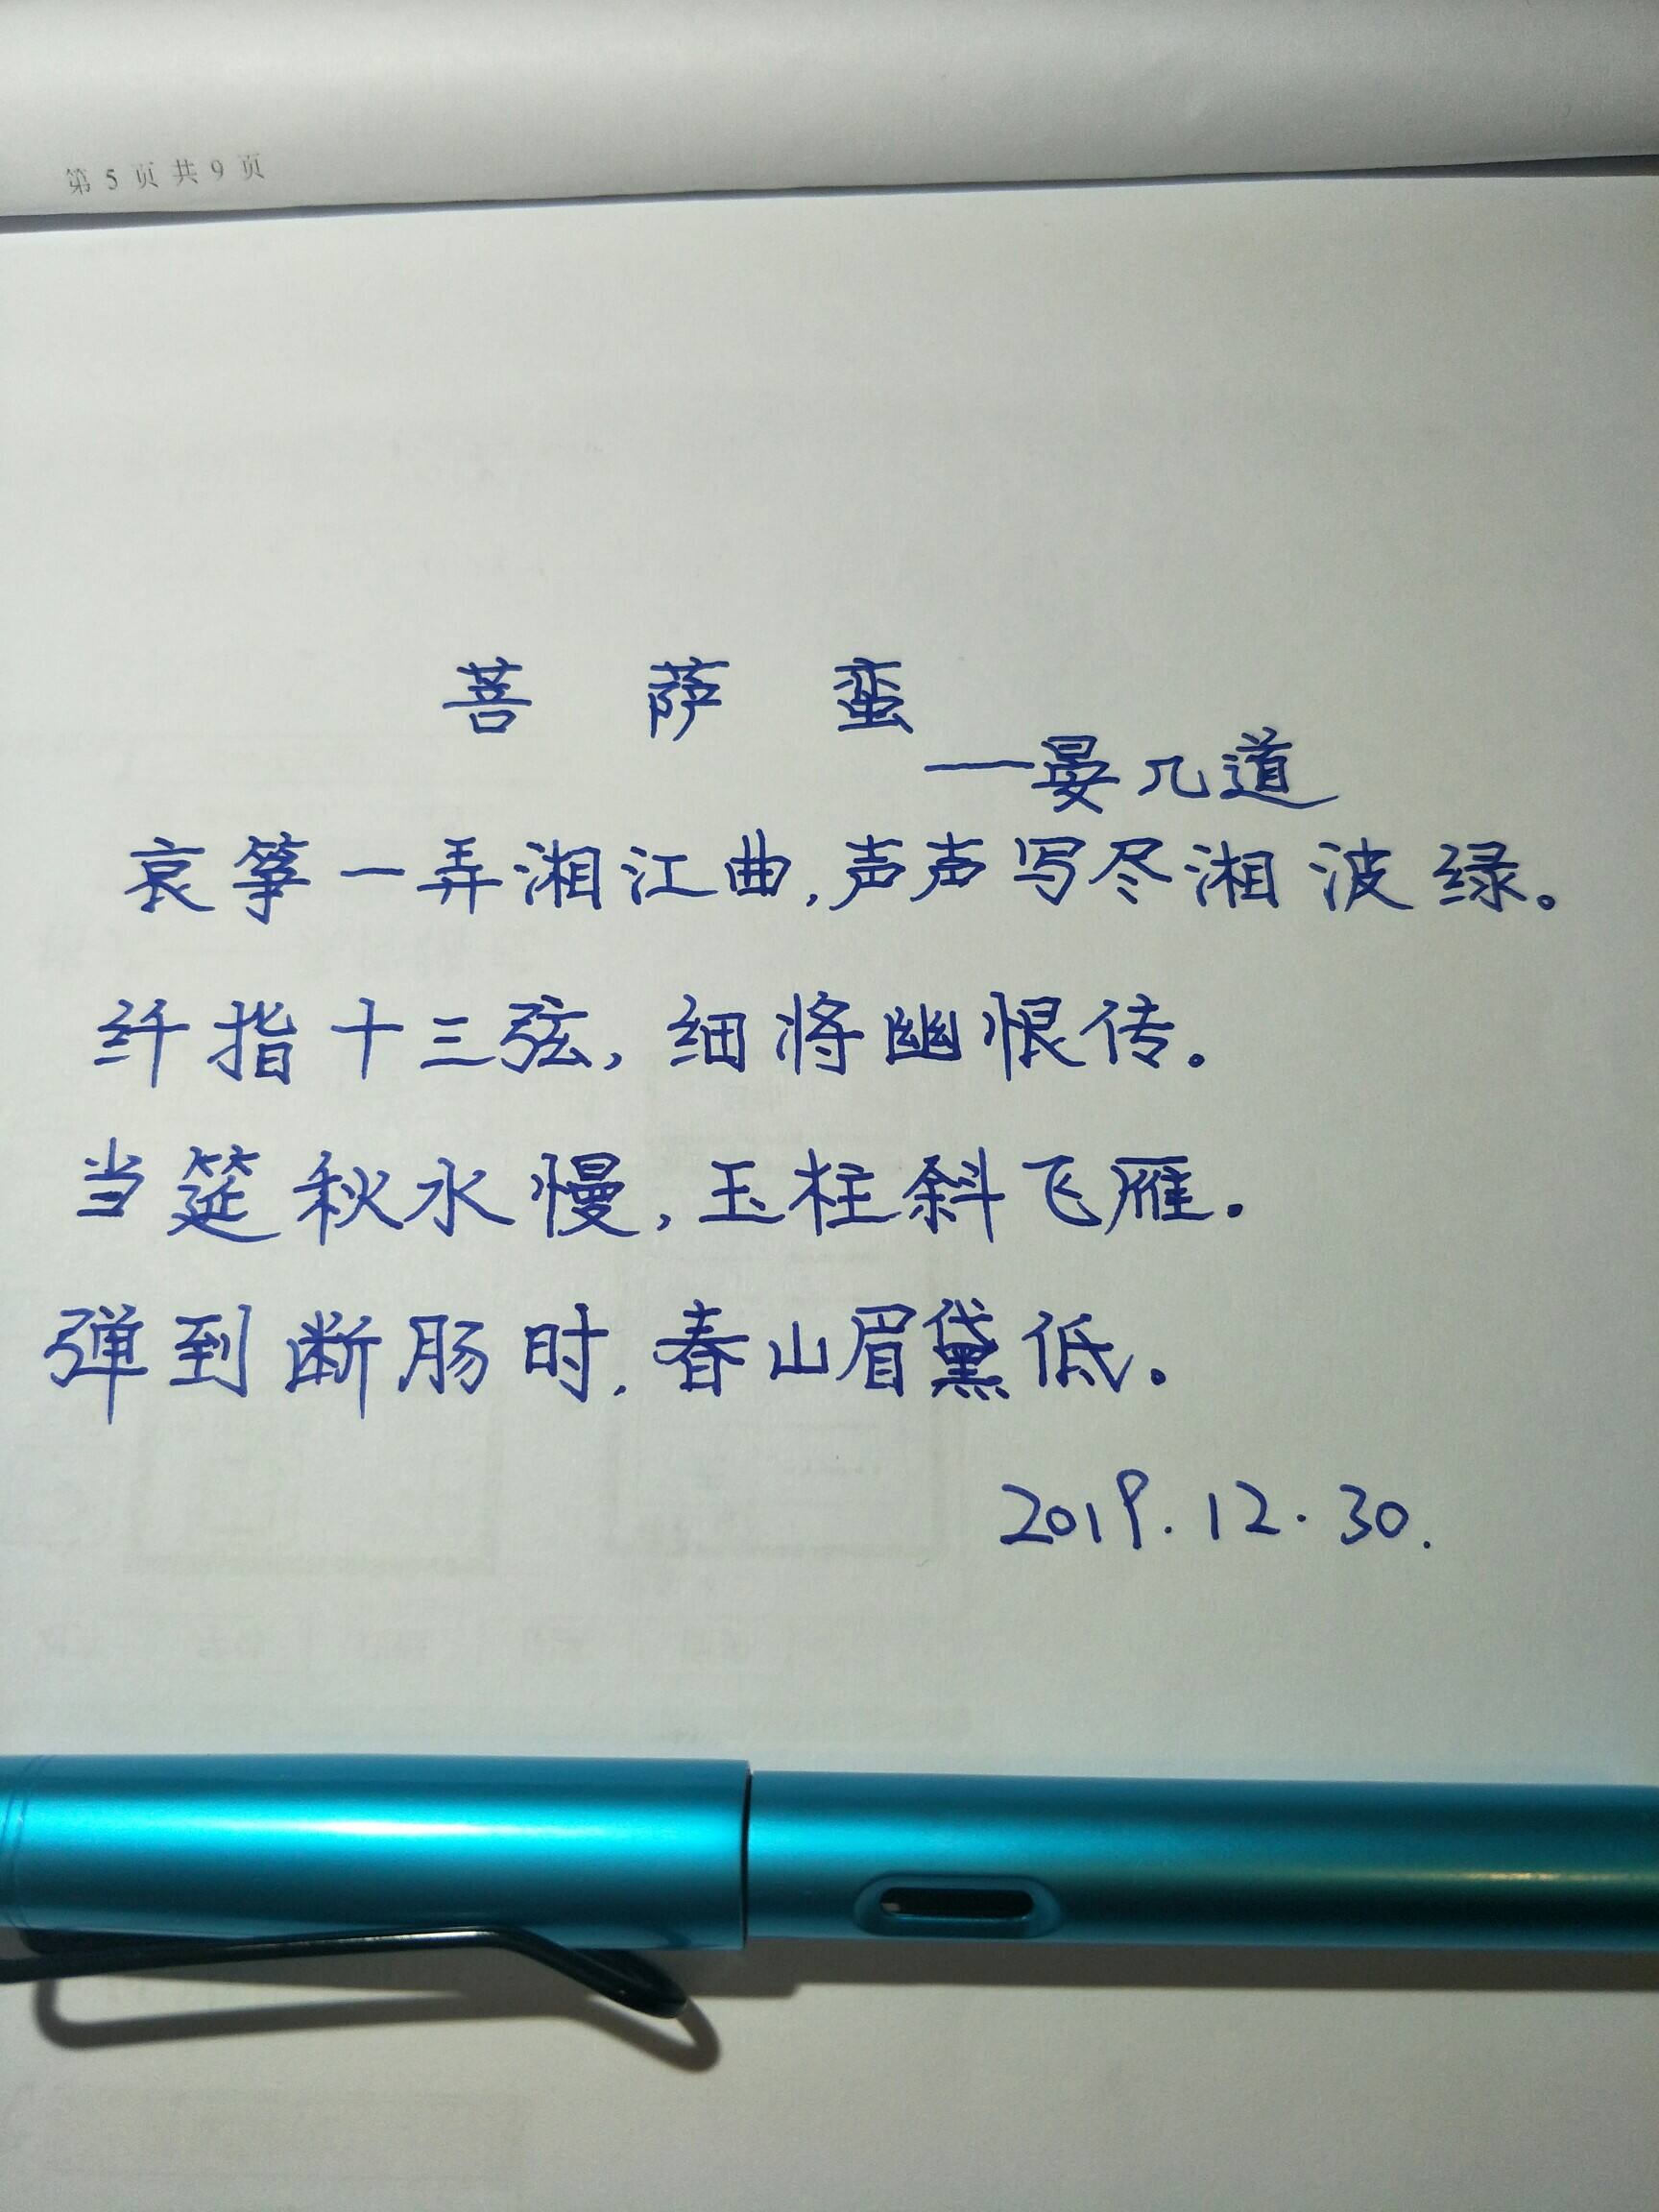 第 5 页 共 9 页
菩 萨 蛮
——晏几道
哀筝一弄湘江曲,声声写尽湘波绿。
纤指十三弦,细将幽恨传。
当筵秋水慢,玉柱斜飞雁。
弹到断肠时,春山眉黛低。
2019.12.30.